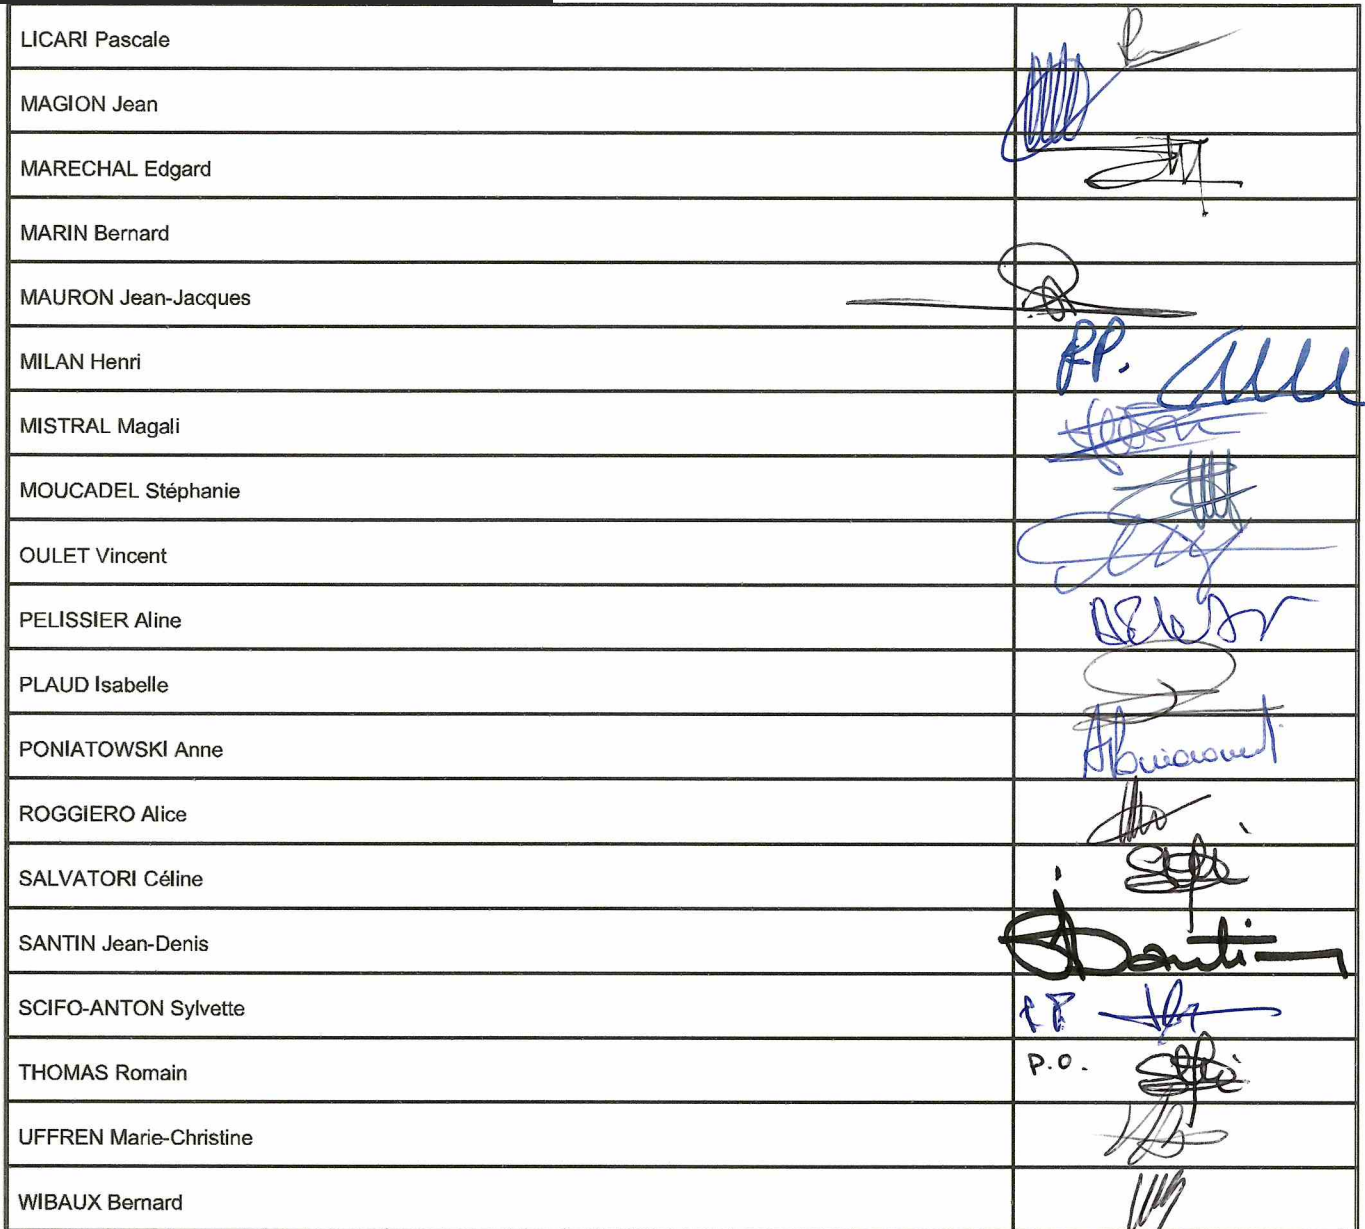 LICARI Pascale
MAGION Jean
MARECHAL Edgard
MARIN Bernard
MAURON Jean-Jacques
MILAN Henri PP.
MISTRAL Magali
MOUCADEL Stéphanie
OULET Vincent
PELISSIER Aline
PLAUD Isabelle
PONIATOWSKI Anne
ROGGIERO Alice
SALVATORI Céline
SANTIN Jean-Denis
SCIFO-ANTON Sylvette
THOMAS Romain P.O.
UFFREN Marie-Christine
WIBAUX Bernard